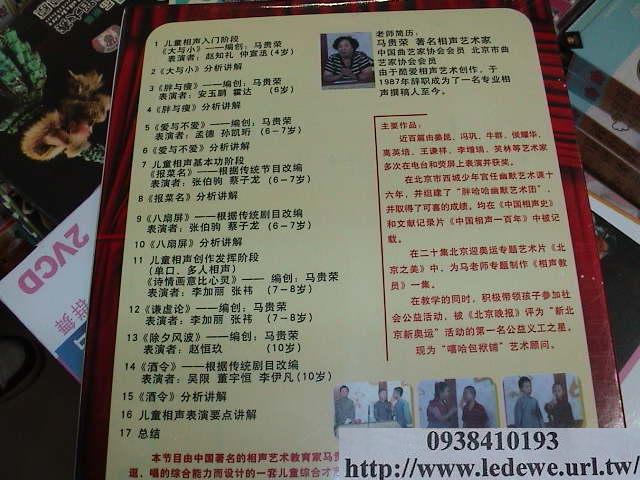 1 儿童相声入门阶段
《大与小》——编创：马贵荣
表演者：赵知礼 仲宣丞(4岁)
2《大与小》分析讲解
3《胖与瘦》——编创：马贵荣
表演者：安玉鹏 霍达 (6岁)
4《胖与瘦》分析讲解
5《爱与不爱》——编创：马贵荣
表演者：孟德 孙凯珩 (6-7岁)
6《爱与不爱》分析讲解
7 儿童相声基本功阶段
《报菜名》——根据传统节目改编
表演者：张伯驹 蔡子龙 (6-7岁)
8《报菜名》分析讲解
9《八扇屏》——根据传统剧目改编
表演者：张伯驹 蔡子龙 (6-7岁)
10《八扇屏》分析讲解
11 儿童相声创作发挥阶段
(单口、多人相声)
《诗情画意比心灵》——编创：马贵荣
表演者：李加丽 张祎 (7-8岁)
12《谦虚论》——编创：马贵荣
表演者：李加丽 张祎 (7-8岁)
13《除夕风波》——编创：马贵荣
表演者：赵恒玖 (10岁)
14《酒令》——根据传统剧目改编
表演者：吴限 董宇恒 李伊凡(10岁)
15《酒令》分析讲解
16 儿童相声表演要点讲解
17 总结
本节目由中国著名的相声艺术教育家马贵
逗、唱的综合能力而设计的一套儿童综合才
老师简历：
马贵荣 著名相声艺术家
中国曲艺家协会会员 北京市曲
艺家协会会员
由于酷爱相声艺术创作，于
1987年辞职成为了一名专业相
声撰稿人至今。
主要作品：
近百篇由姜昆、冯巩、牛群、侯耀华、
高英培、王谦祥、李增瑞、笑林等艺术家
多次在电台和荧屏上表演并获奖。
在北京市西城少年宫任幽默艺术课十
六年，并组建了“胖哈哈幽默艺术团”，
并取得了可喜的成绩。均在《中国相声史》
和文献记录片《中国相声一百年》中被记
载。
在二十集北京迎奥运专题艺术片《北
京之美》中，为马老师专题制作《相声教
员》一集。
在教学的同时，积极带领孩子参加社
会公益活动，被《北京晚报》评为“新北
京新奥运”活动的第一名公益义工之星。
现为“嘻哈包袱铺”艺术顾问。
2VCD
群舞
0938410193
http://www.ledewe.url.tw/